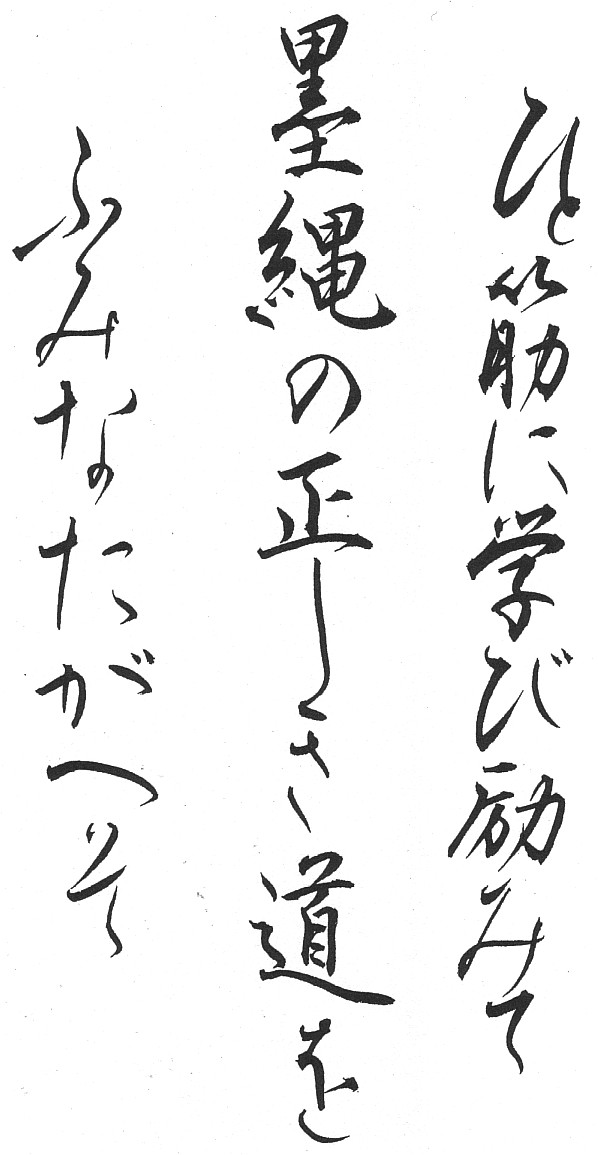 ひと筋に学び励みて
墨縄の正しき道を
ふみなたがへそ